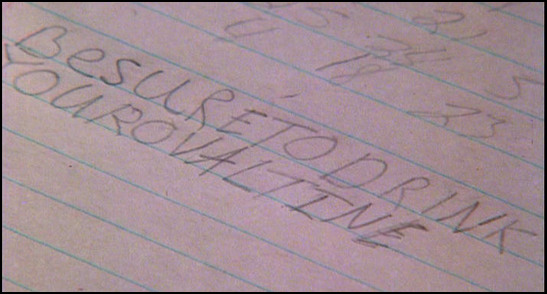 21
5
4 18 23
BeSURETODRINK
YOUROVALTINE